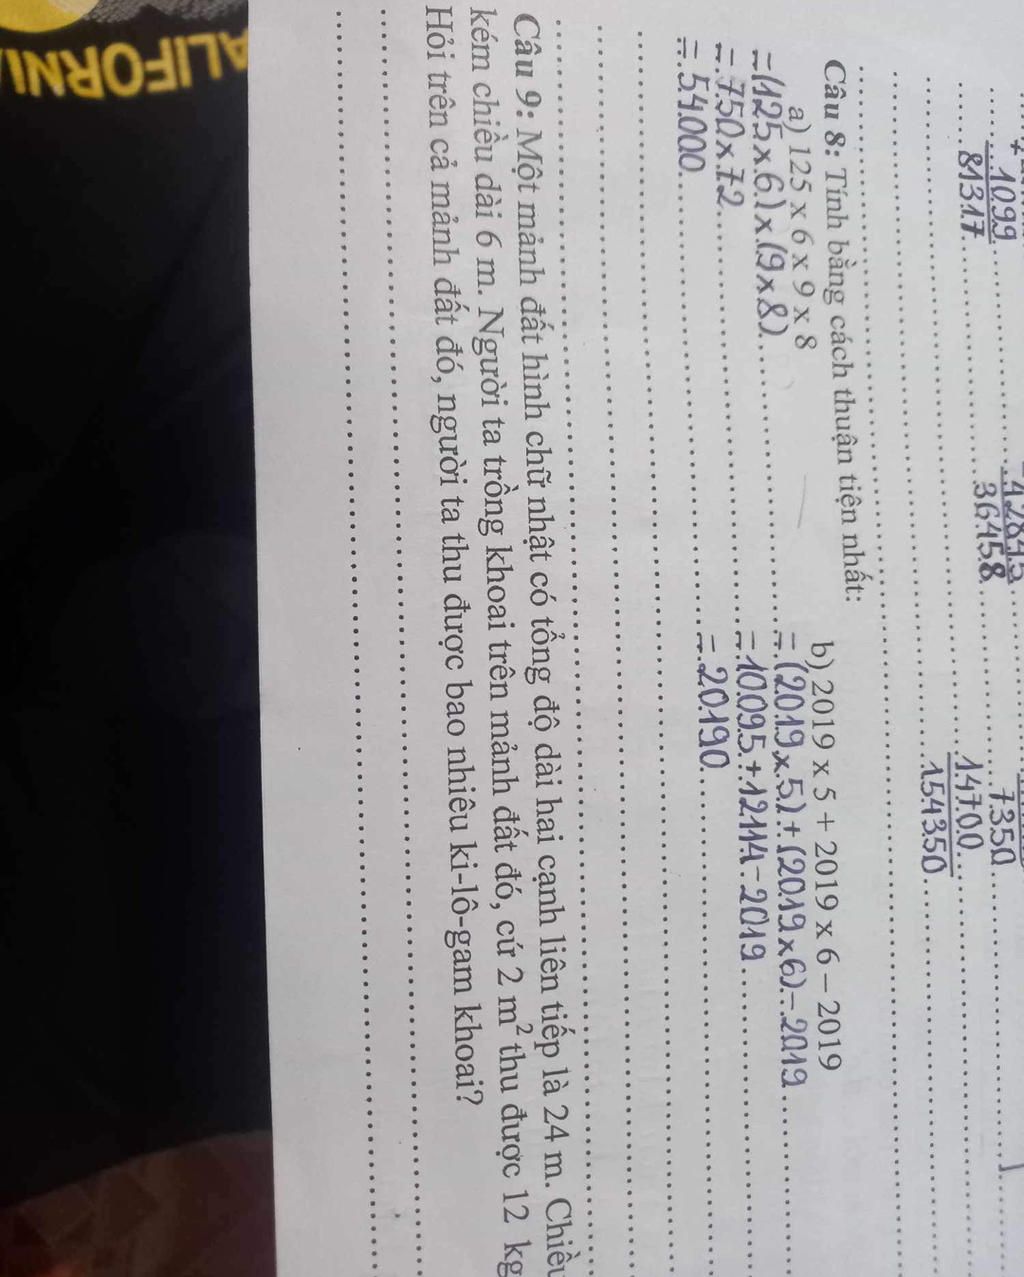 ALIFORNIA
1099
81317
42845
36458
7350
14700
154350
Câu 8: Tính bằng cách thuận tiện nhất:
a) 125 x 6 x 9 x 8
= (125 x 6) x (9 x 8)
= 750 x 72
= 54000
b) 2019 x 5 + 2019 x 6 – 2019
= (2019 x 5) + (2019 x 6) - 2019
= 10095 + 12114 - 2019
= 20190
Câu 9: Một mảnh đất hình chữ nhật có tổng độ dài hai cạnh liên tiếp là 24 m. Chiều
kém chiều dài 6 m. Người ta trồng khoai trên mảnh đất đó, cứ 2 m² thu được 12 kg
Hỏi trên cả mảnh đất đó, người ta thu được bao nhiêu ki-lô-gam khoai?